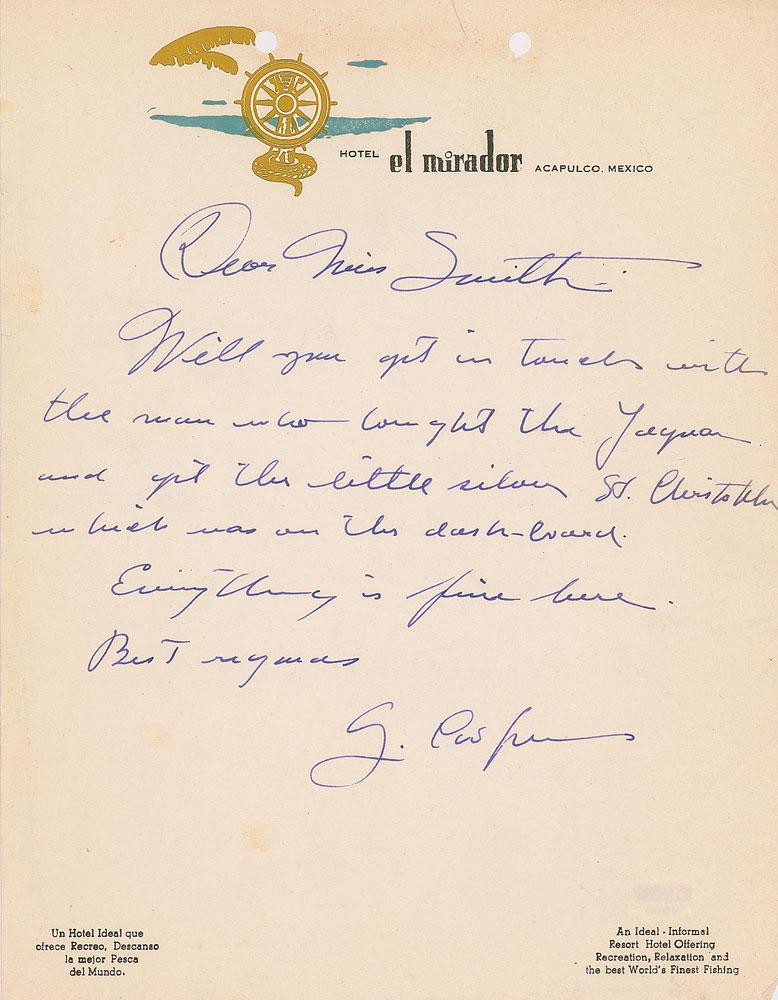 HOTEL el mirador ACAPULCO, MEXICO
Dear Miss Smith:
Will you get in touch with
the man who bought the Jaguar
and get the little silver St. Christopher
which was on the dash-board.
Everything is fine here.
Best regards
G. Cooper
Un Hotel Ideal que
ofrece Recreo, Descanso
la mejor Pesca
del Mundo.
An Ideal - Informal
Resort Hotel Offering
Recreation, Relaxation and
the best World's Finest Fishing